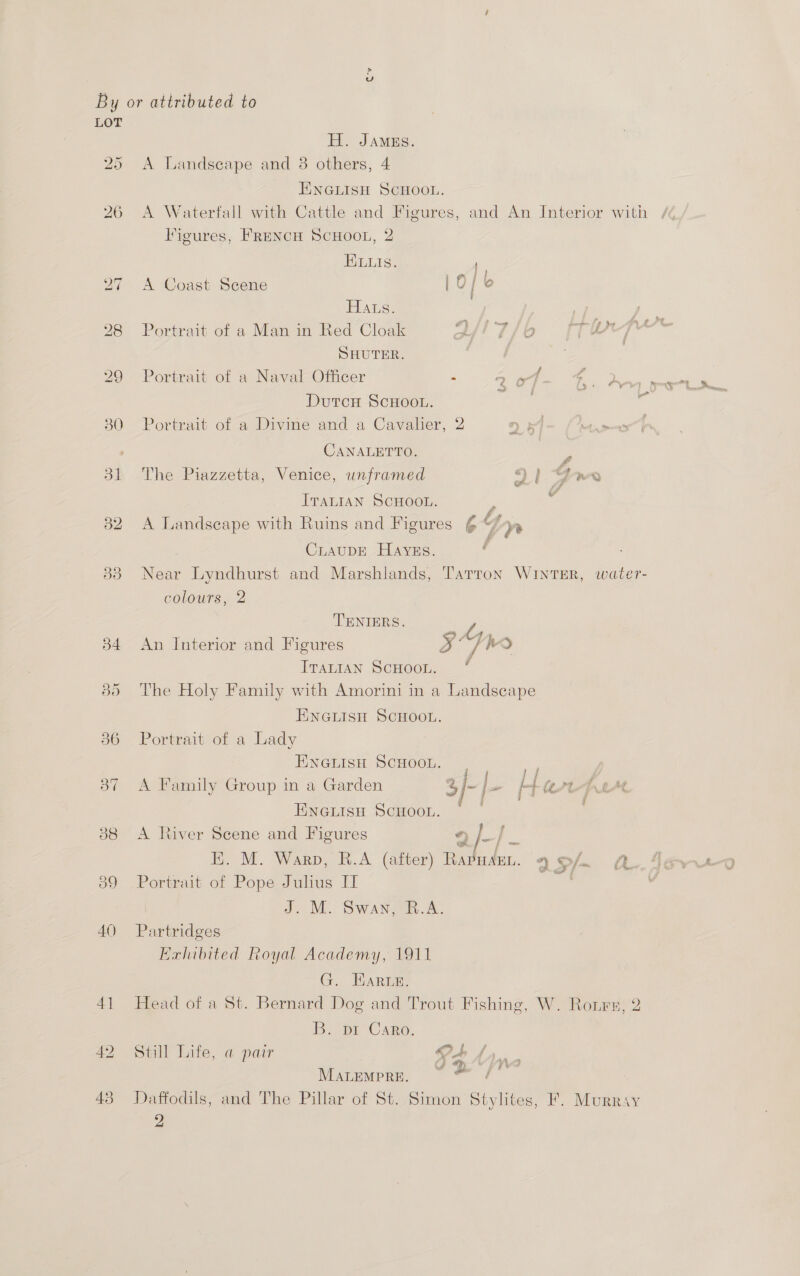 3
By or attributed to
LOT
H. JAMES.
25 A Landscape and 3 others, 4
ENGLISH SCHOOL.
26 A Waterfall with Cattle and Figures, and An Interior with
Figures, FRENCH SCHOOL, 2
ELLIS.
27 A Coast Scene 10/6
HALS.
28 Portrait of a Man in Red Cloak 2/17/6
SHUTER.
29 Portrait of a Naval Officer
DUTCH SCHOOL.
30 Portrait of a Divine and a Cavalier, 2
CANALETTO.
31 The Piazzetta, Venice, unframed 21 Gns
ITALIAN SCHOOL.
32 A Landscape with Ruins and Figures 6 Gns
CLAUDE HAYES.
33 Near Lyndhurst and Marshlands, TATTON WINTER, water-
colours, 2
TENIERS.
34 An Interior and Figures Gns
ITALIAN SCHOOL.
35 The Holy Family with Amorini in a Landscape
ENGLISH SCHOOL.
36 Portrait of a Lady
ENGLISH SCHOOL.
37 A Family Group in a Garden 3/-/-
ENGLISH SCHOOL.
38 A River Scene and Figures 2/-/-
E. M. WARD, R.A (after) RAPHAEL.
39 Portrait of Pope Julius II
J. M. SWAN, R.A.
40 Partridges
Exhibited Royal Academy, 1911
G. EARLE.
41 Head of a St. Bernard Dog and Trout Fishing, W. ROLFE, 2
B. DI CARO.
42 Still Life, a pair
MALEMPRE.
43 Daffodils, and The Pillar of St. Simon Stylites, F. MURRAY
2